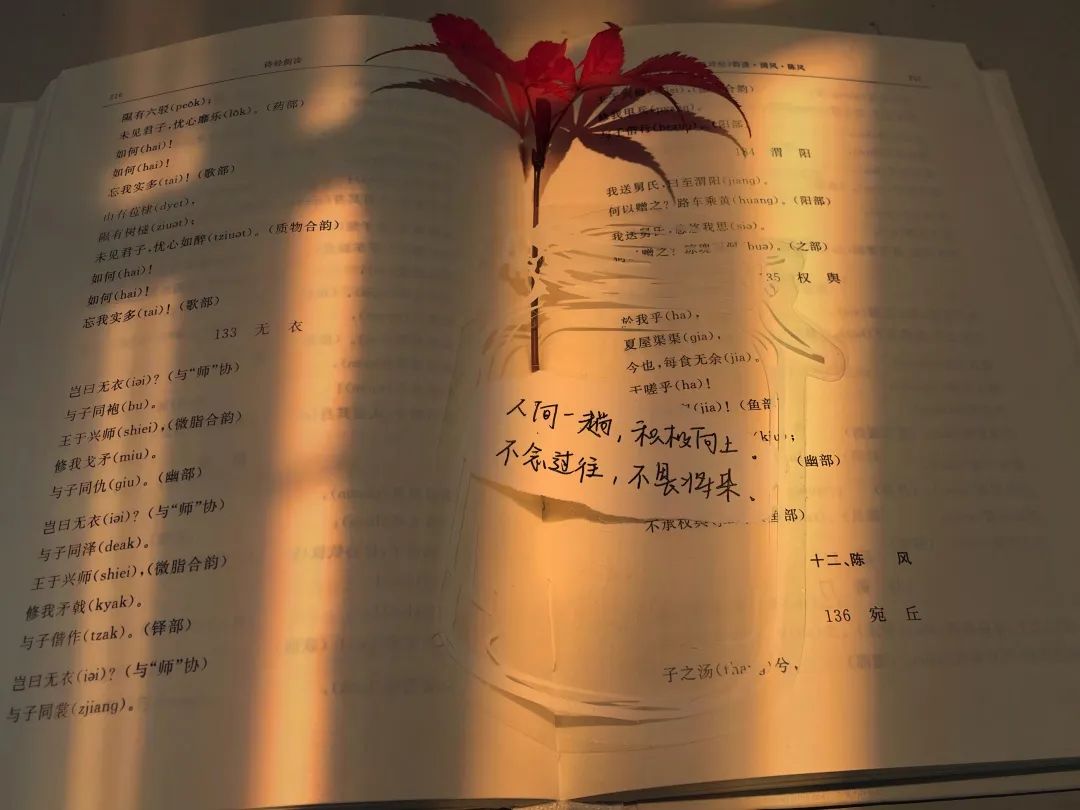 诗经韵读
隰有六驳(peôk);
未见君子,忧心靡乐(lôk)。(药部)
如何(hai)!
如何(hai)!
忘我实多(tai)!(歌部)
山有苞棣(dyet),
隰有树檖(ziuət);
未见君子,忧心如醉(tziuət)。(质物合韵)
如何(hai)!
如何(hai)!
忘我实多(tai)!(歌部)
133 无 衣
岂曰无衣(iəi)?(与“师”协)
与子同袍(bu)。
王于兴师(shiei),(微脂合韵)
修我戈矛(miu)。
与子同仇(giu)。(幽部)
岂曰无衣(iəi)?(与“师”协)
与子同泽(deak)。
王于兴师(shiei),(微脂合韵)
修我矛戟(kyak)。
与子偕作(tzak)。(铎部)
岂曰无衣(iəi)?(与“师”协)
与子同裳(zjiang)。
国风·陈风
合韵)
阳部)
渭 阳
我送舅氏,曰至渭阳(jiang)。
何以赠之?路车乘黄(huang)。(阳部)
我送舅氏,悠悠我思(siə)。
赠之?琼瑰 buə)。(之部)
35 权 舆
於我乎(ha),
夏屋渠渠(gia),
今也,每食无余(jia)。
于嗟乎(ha)!
(jia)!(鱼部
人间一趟,积极向上。
不念过往,不畏将来、
(幽部)
不承权舆 鱼部)
十二、陈 风
136 宛 丘
子之汤 兮,